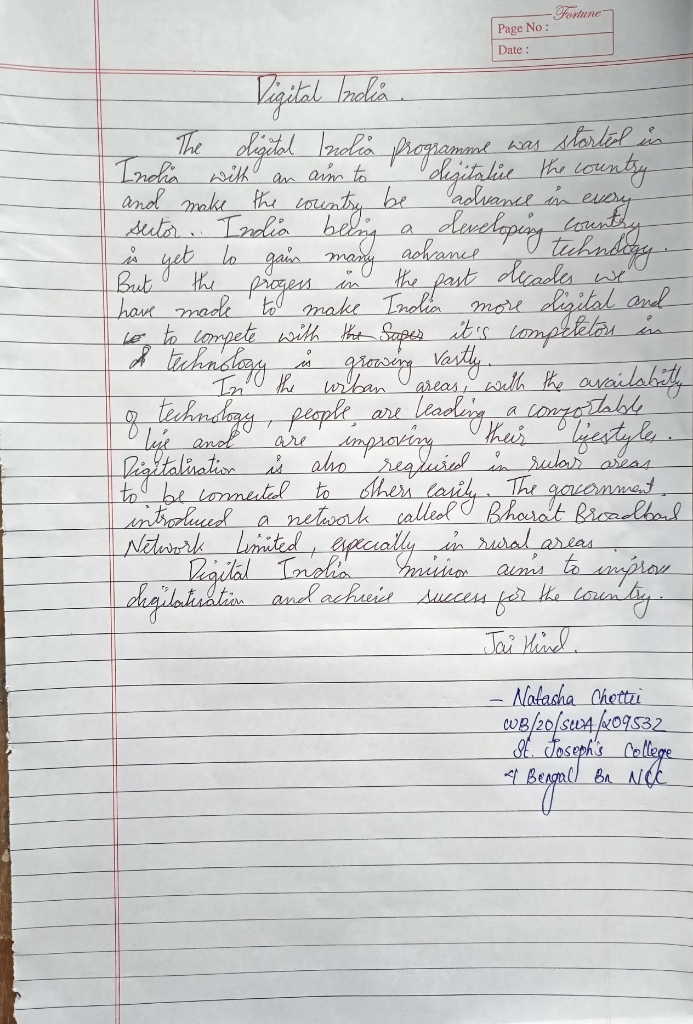 Fortune
Page No :
Date :
Digital India .
The digital India programme was started in
India with an aim to digitalise the country
and make the country be advance in every
sector.. India being a developing country
is yet to gain many advance technology.
But the progess in the past decades we
have made to make India more digital and
to compete with the Super it's competetors in
technology is growing vastly.
In the urban areas, with the availability
of technology, people are leading a comfortable
life and are improving their lifestyles.
Digitalisation is also required in rular areas
to be connected to others easily. The government
introduced a network called Bharat Broadband
Network Limited, especially in rural areas.
Digital India mission aims to improve
digitalisation and achieve success for the country.
Jai Hind.
- Natasha Chettri
WB/20/SWA/209532
St. Joseph's College
Bengal Bn NCC